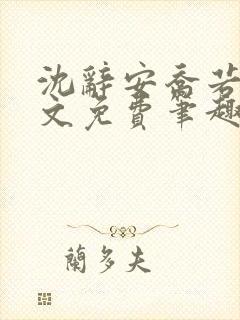 沈辭安喬若
文免費筆趣
蘭多夫